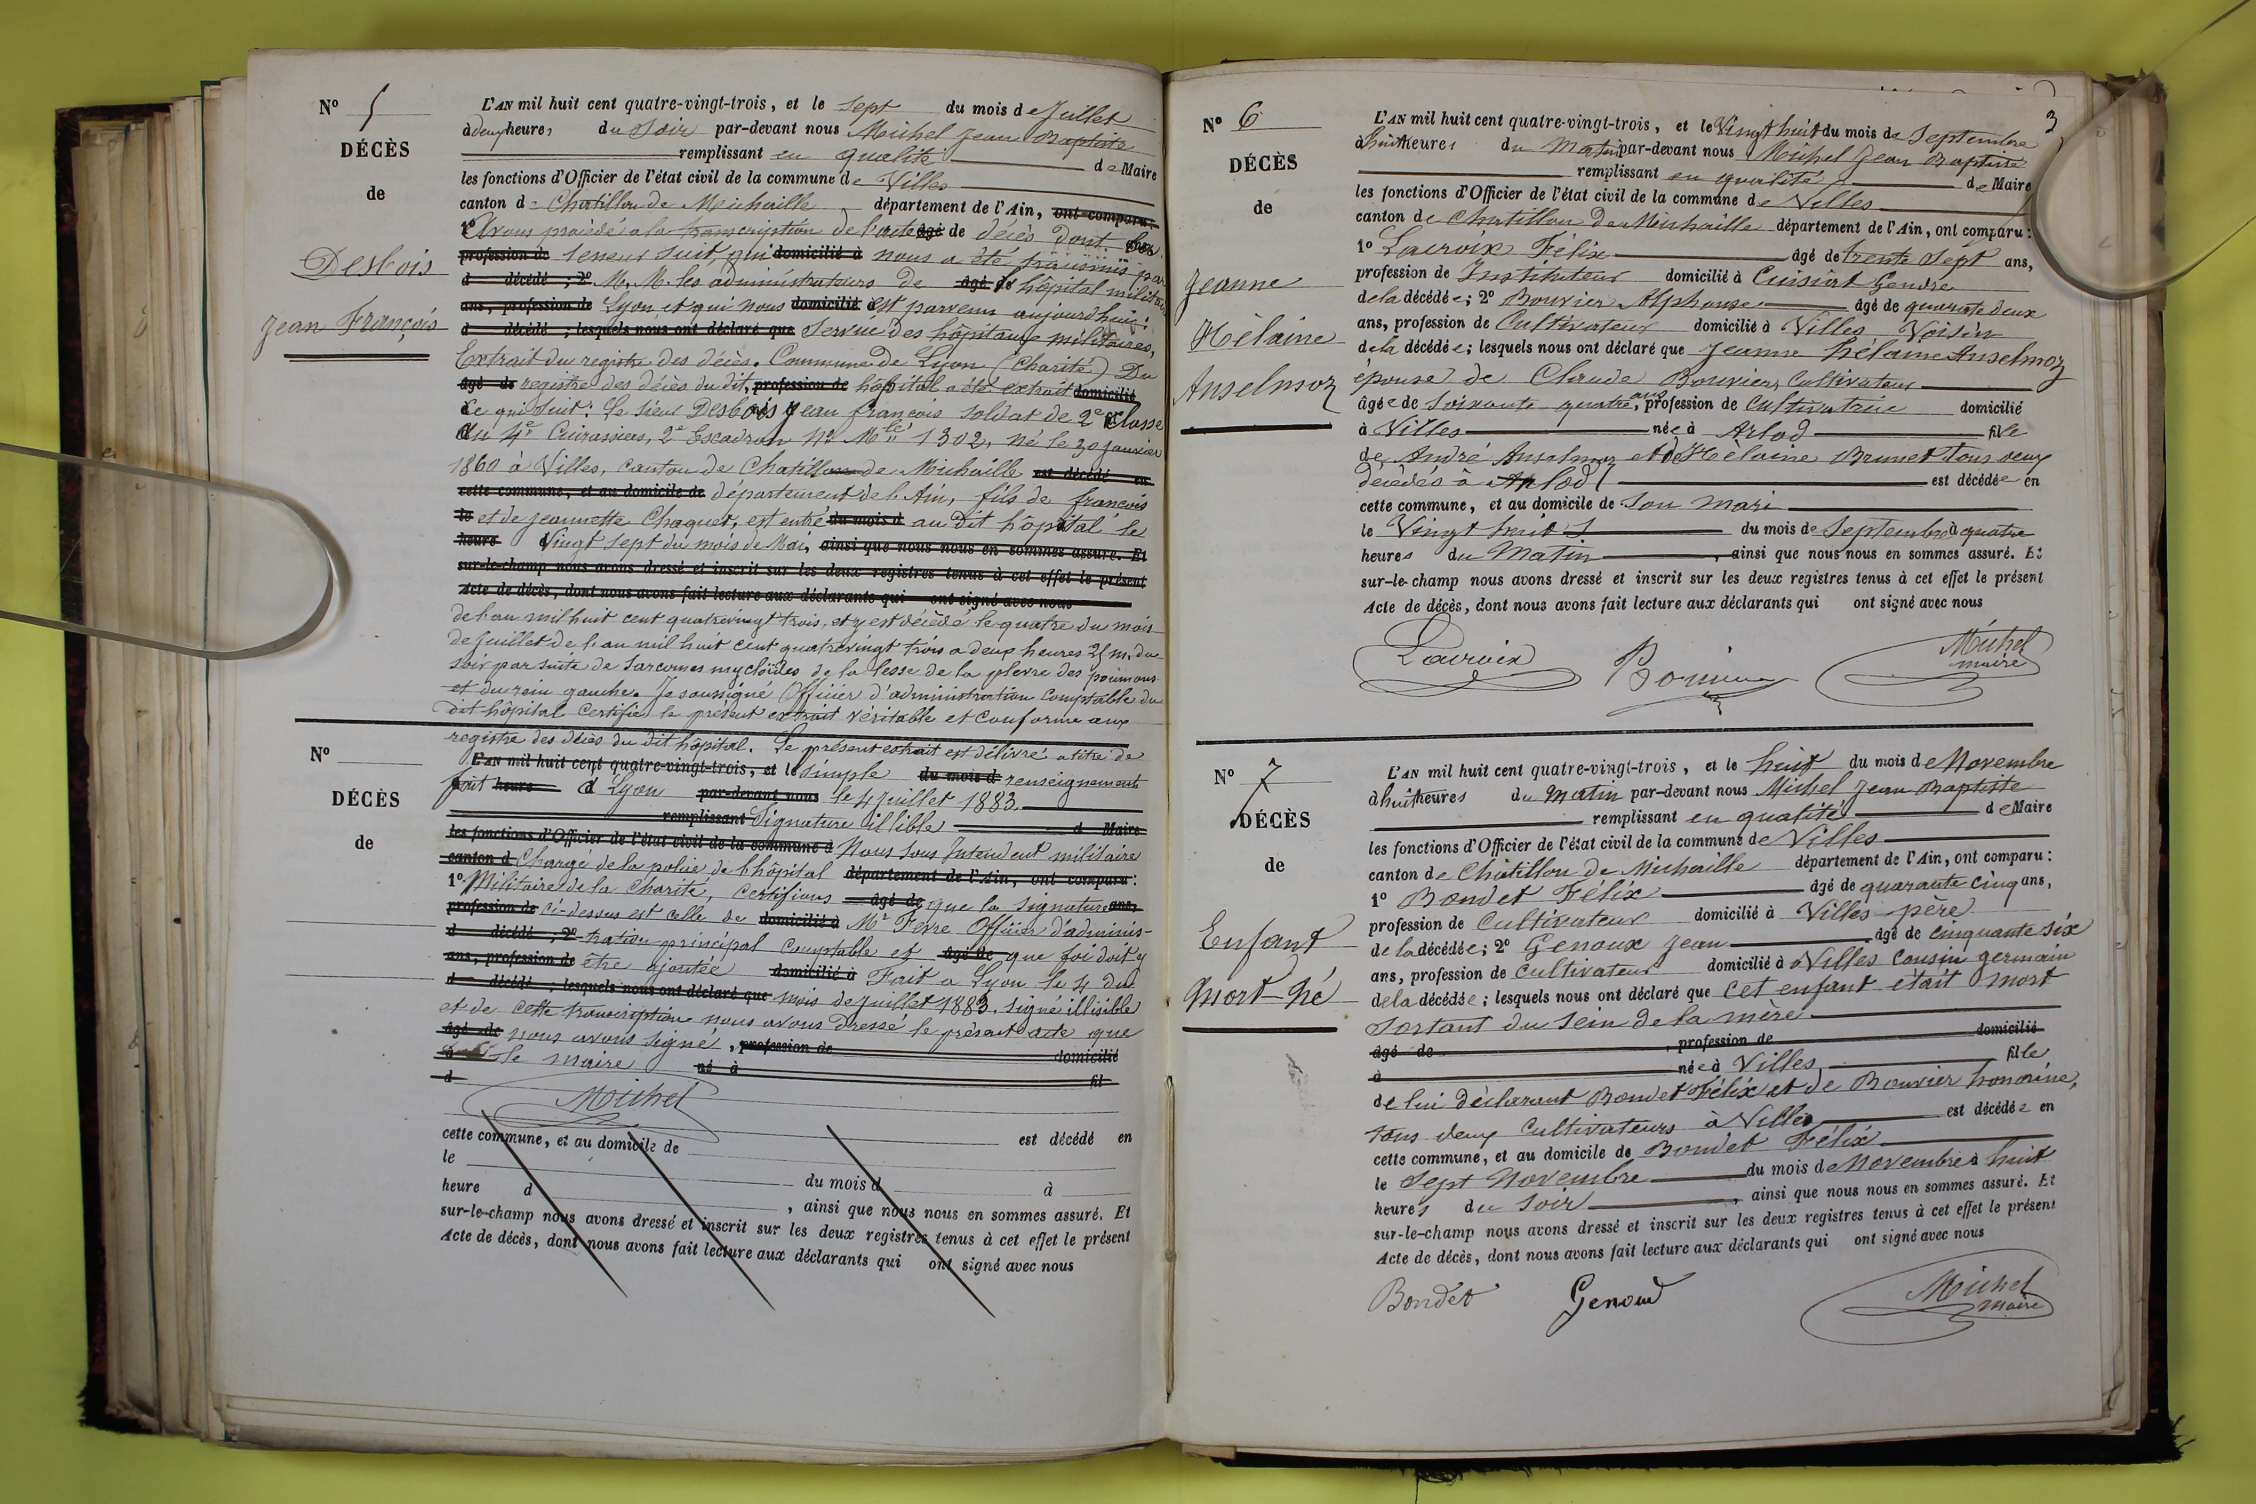 N° 5
DÉCÈS
de
Desbois
Jean François
L'AN mil huit cent quatre-vingt-trois, et le sept du mois de Juillet
à deux heures du Soir par-devant nous Michel Jean Baptiste
remplissant en qualité de Maire
les fonctions d'Officier de l'état civil de la commune de Villes
canton de Chatillon de Michaille département de l'Ain, ont comparu :
1° Avons procédé a la transcription de l'acte âgé de décès dont
profession de teneur suit, qui domicilié à nous a été transmis par
d décédé ; 2° M. M. les administrateurs de âgé de l'hôpital militaire
ans, profession de Lyon et qui nous domicilié à est parvenu aujourd'hui :
d décédé ; lesquels nous ont déclaré que Service des hôpitaux militaires,
Extrait du registre des décès. Commune de Lyon (Charité) Du
âgé de registre des décès du dit, profession de hôpital a été extrait domicilié
ce qui suit : Le sieur Desbois Jean françois soldat de 2e Classe
du 4e Cuirassiers, 2e Escadron N° Mle 1302, né le 30 janvier
1860 à Villes, canton de Chatillon de Michaille est décédé en
cette commune, et au domicile de département de l'Ain, fils de françois
le et de Jeannette Chaquet, est entré du mois d au dit hôpital le
heure Vingt sept du mois de Mai, ainsi que nous nous en sommes assuré. Et
sur-le-champ nous avons dressé et inscrit sur les deux registres tenus à cet effet le présent
Acte de décès, dont nous avons fait lecture aux déclarants qui ont signé avec nous
de l'an mil huit cent quatrevingt trois, et y est décédé le quatre du mois
de Juillet de l'an mil huit cent quatrevingt trois a deux heures 25 m. du
soir par suite de Sarcomes de la fesse de la plevre des poumons
et du rein gauche. Je soussigné Officier d'administration comptable du
dit hôpital certifie le présent extrait véritable et conforme aux
registre des décès du dit hôpital. Le présent extrait est délivré a titre de
N°
DÉCÈS
de
L'AN mil huit cent quatre-vingt-trois, et le simple du mois d renseignement
fait heure d Lyon par-devant nous le 4 Juillet 1883.
remplissant Signature illible d Maire
les fonctions d'Officier de l'état civil de la commune d Nous Sous Intendent militaire
canton d Chargé de la police de l'hôpital département de l'Ain, ont comparu :
1° Militaire de la Charité, certifions âgé de que la signature ans,
profession de ci-dessus est celle de domicilié à Mr Fevre Officier d'adminis-
d décédé ; 2° tration principal comptable et âgé de que foi doit y
ans, profession de être ajoutée domicilié à Fait a Lyon le 4 du
d décédé ; lesquels nous ont déclaré que mois de juillet 1883. Signé illisible
et de cette transcription nous avons dressé le présent acte que
âgé de nous avons signé, profession de
à Le maire né à domicilié
d fil
Michel
cette commune, et au domicile de est décédé en
le
du mois d à
heure d , ainsi que nous nous en sommes assuré. Et
sur-le-champ nous avons dressé et inscrit sur les deux registres tenus à cet effet le présent
Acte de décès, dont nous avons fait lecture aux déclarants qui ont signé avec nous
3
N° 6
DÉCÈS
de
Jeanne
Hélaine
Anselmoz
L'AN mil huit cent quatre-vingt-trois, et le Vingt huit du mois de Septembre
à huit heures du Matin par-devant nous Michel Jean Baptiste
remplissant en qualité de Maire
les fonctions d'Officier de l'état civil de la commune de Villes
canton de Chatillon de Michaille département de l'Ain, ont comparu :
1° Lacroix Félix âgé de trente Sept ans,
profession de Instituteur domicilié à Cuisiat Gendre
de la décédée ; 2° Bouvier Alphonse âgé de quarante deux
ans, profession de Cultivateur domicilié à Villes Voisin
de la décédée ; lesquels nous ont déclaré que Jeanne hélaine Anselmoz
épouse de Claude Bouvier, Cultivateur
âgée de soixante quatre ans, profession de Cultivatrice domicilié
à Villes née à Arlod fille
de André Anselmoz et de Hélaine Brunet tous deux
décédés à Arlod est décédée en
cette commune, et au domicile de son mari
le Vingt huit du mois de Septembre à quatre
heures du Matin , ainsi que nous nous en sommes assuré. Et
sur-le-champ nous avons dressé et inscrit sur les deux registres tenus à cet effet le présent
Acte de décès, dont nous avons fait lecture aux déclarants qui ont signé avec nous
Lacroix Michel
maire
N° 7
DÉCÈS
de
Enfant
Mort-Né
L'AN mil huit cent quatre-vingt-trois, et le huit du mois de Novembre
à huit heures du Matin par-devant nous Michel Jean Baptiste
remplissant en qualité de Maire
les fonctions d'Officier de l'état civil de la commune de Villes
canton de Châtillon de Michaille département de l'Ain, ont comparu :
1° Bondet Félix âgé de quarante cinq ans,
profession de Cultivateur domicilié à Villes père
de la décédée ; 2° Genoux Jean âgé de cinquante six
ans, profession de cultivateur domicilié à Villes cousin germain
de la décédée ; lesquels nous ont déclaré que cet enfant était mort
sortant du sein de la mère
âgé de , profession de domicilié
à née à Villes fille
de lui déclarant Bondet Félix et de Bouvier honorine,
tous deux Cultivateurs à Villes est décédée en
cette commune, et au domicile de Bondet Félix
le Sept Novembre du mois de Novembre à huit
heures du soir , ainsi que nous nous en sommes assuré. Et
sur-le-champ nous avons dressé et inscrit sur les deux registres tenus à cet effet le présent
Acte de décès, dont nous avons fait lecture aux déclarants qui ont signé avec nous
Bondet Genoud Michel
maire